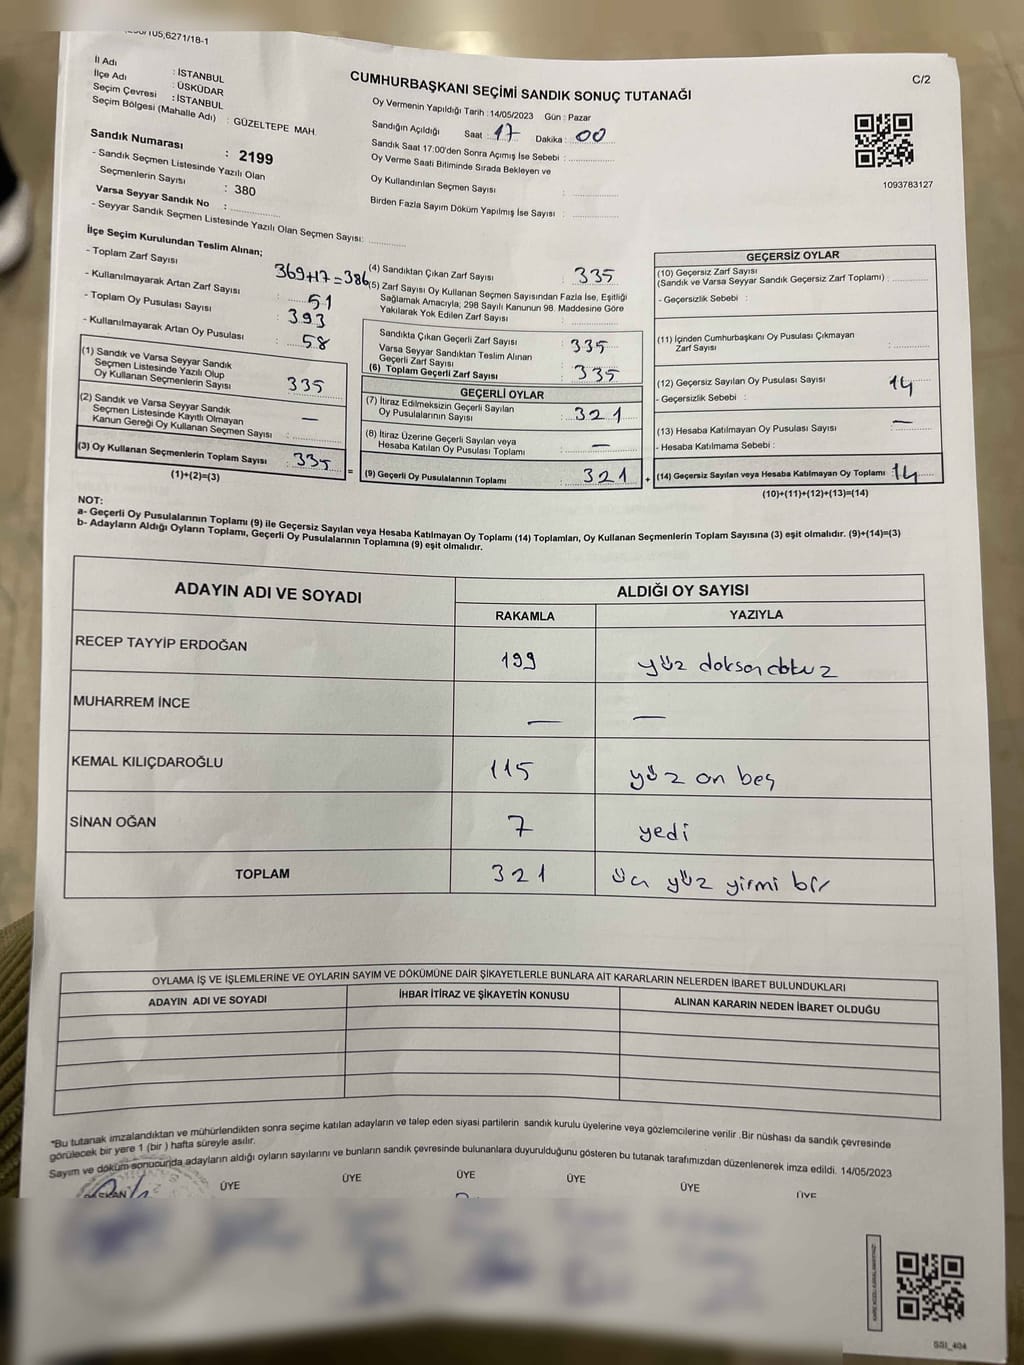 105,6271/18-1
C/2
CUMHURBAŞKANI SEÇİMİ SANDIK SONUÇ TUTANAĞI
İl Adı : İSTANBUL
İlçe Adı : ÜSKÜDAR
Seçim Çevresi : İSTANBUL
Seçim Bölgesi (Mahalle Adı) : GÜZELTEPE MAH.
Sandık Numarası : 2199
- Sandık Seçmen Listesinde Yazılı Olan
Seçmenlerin Sayısı : 380
Varsa Seyyar Sandık No :
- Seyyar Sandık Seçmen Listesinde Yazılı Olan Seçmen Sayısı:
Oy Vermenin Yapıldığı Tarih : 14/05/2023 Gün : Pazar
Sandığın Açıldığı Saat : 17 Dakika : 00
Sandık Saat 17:00'den Sonra Açımış İse Sebebi :
Oy Verme Saati Bitiminde Sırada Bekleyen ve
Oy Kullandırılan Seçmen Sayısı :
Birden Fazla Sayım Döküm Yapılmış İse Sayısı :
1093783127
İlçe Seçim Kurulundan Teslim Alınan;
- Toplam Zarf Sayısı 369+17=386
- Kullanılmayarak Artan Zarf Sayısı : 51
- Toplam Oy Pusulası Sayısı : 393
- Kullanılmayarak Artan Oy Pusulası : 58
(1) Sandık ve Varsa Seyyar Sandık
Seçmen Listesinde Yazılı Olup
Oy Kullanan Seçmenlerin Sayısı : 335
(2) Sandık ve Varsa Seyyar Sandık
Seçmen Listesinde Kayıtlı Olmayan
Kanun Gereği Oy Kullanan Seçmen Sayısı : —
(3) Oy Kullanan Seçmenlerin Toplam Sayısı : 335 =
(1)+(2)=(3)
(4) Sandıktan Çıkan Zarf Sayısı : 335
(5) Zarf Sayısı Oy Kullanan Seçmen Sayısından Fazla İse, Eşitliği
Sağlamak Amacıyla; 298 Sayılı Kanunun 98. Maddesine Göre
Yakılarak Yok Edilen Zarf Sayısı :
Sandıkta Çıkan Geçerli Zarf Sayısı : 335
Varsa Seyyar Sandıktan Teslim Alınan
Geçerli Zarf Sayısı
(6) Toplam Geçerli Zarf Sayısı : 335
GEÇERLİ OYLAR
(7) İtiraz Edilmeksizin Geçerli Sayılan
Oy Pusulalarının Sayısı : 321
(8) İtiraz Üzerine Geçerli Sayılan veya
Hesaba Katılan Oy Pusulası Toplamı : —
(9) Geçerli Oy Pusulalarının Toplamı : 321 +
GEÇERSİZ OYLAR
(10) Geçersiz Zarf Sayısı
(Sandık ve Varsa Seyyar Sandık Geçersiz Zarf Toplamı) :
- Geçersizlik Sebebi :
(11) İçinden Cumhurbaşkanı Oy Pusulası Çıkmayan
Zarf Sayısı :
(12) Geçersiz Sayılan Oy Pusulası Sayısı 14
- Geçersizlik Sebebi :
(13) Hesaba Katılmayan Oy Pusulası Sayısı : —
- Hesaba Katılmama Sebebi :
(14) Geçersiz Sayılan veya Hesaba Katılmayan Oy Toplamı : 14
(10)+(11)+(12)+(13)=(14)
NOT:
a- Geçerli Oy Pusulalarının Toplamı (9) ile Geçersiz Sayılan veya Hesaba Katılmayan Oy Toplamı (14) Toplamları, Oy Kullanan Seçmenlerin Toplam Sayısına (3) eşit olmalıdır. (9)+(14)=(3)
b- Adayların Aldığı Oyların Toplamı, Geçerli Oy Pusulalarının Toplamına (9) eşit olmalıdır.
ADAYIN ADI VE SOYADI ALDIĞI OY SAYISI
RAKAMLA YAZIYLA
RECEP TAYYİP ERDOĞAN 199 yüz doksan dokuz
MUHARREM İNCE — —
KEMAL KILIÇDAROĞLU 115 yüz on beş
SİNAN OĞAN 7 yedi
TOPLAM 321 üç yüz yirmi bir
OYLAMA İŞ VE İŞLEMLERİNE VE OYLARIN SAYIM VE DÖKÜMÜNE DAİR ŞİKAYETLERLE BUNLARA AİT KARARLARIN NELERDEN İBARET BULUNDUKLARI
ADAYIN ADI VE SOYADI İHBAR İTİRAZ VE ŞİKAYETİN KONUSU ALINAN KARARIN NEDEN İBARET OLDUĞU
*Bu tutanak imzalandıktan ve mühürlendikten sonra seçime katılan adayların ve talep eden siyasi partilerin sandık kurulu üyelerine veya gözlemcilerine verilir .Bir nüshası da sandık çevresinde
görülecek bir yere 1 (bir ) hafta süreyle asılır.
Sayım ve döküm sonucunda adayların aldığı oyların sayılarını ve bunların sandık çevresinde bulunanlara duyurulduğunu gösteren bu tutanak tarafımızdan düzenlenerek imza edildi. 14/05/2023
BAŞKAN ÜYE ÜYE ÜYE ÜYE ÜYE ÜYE
SSI_404